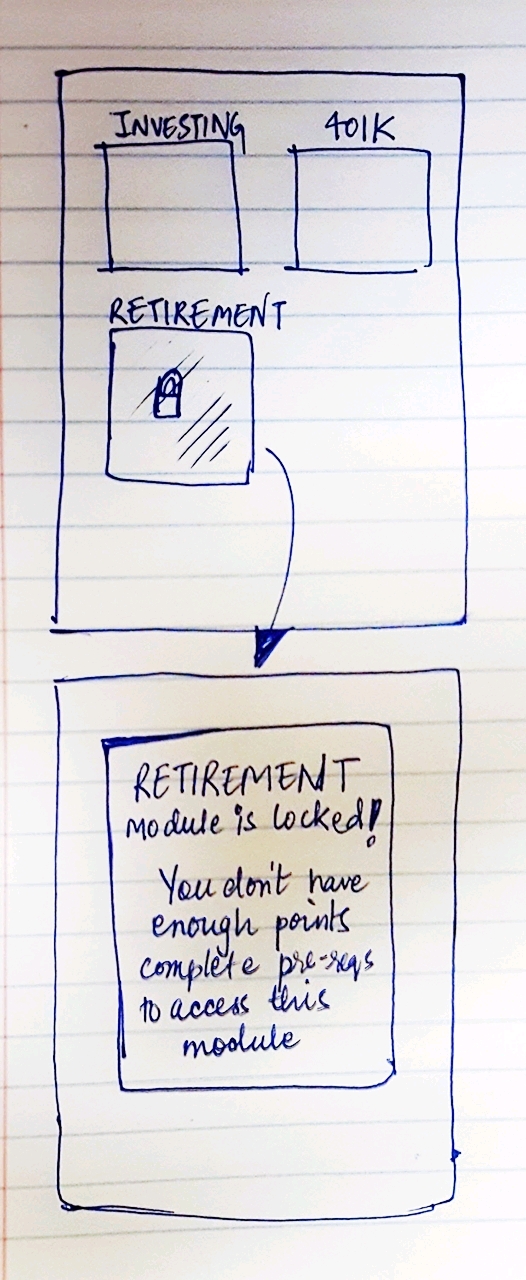 INVESTING 401K
RETIREMENT
RETIREMENT
module is locked!
You don't have
enough points
complete pre-reqs
to access this
module